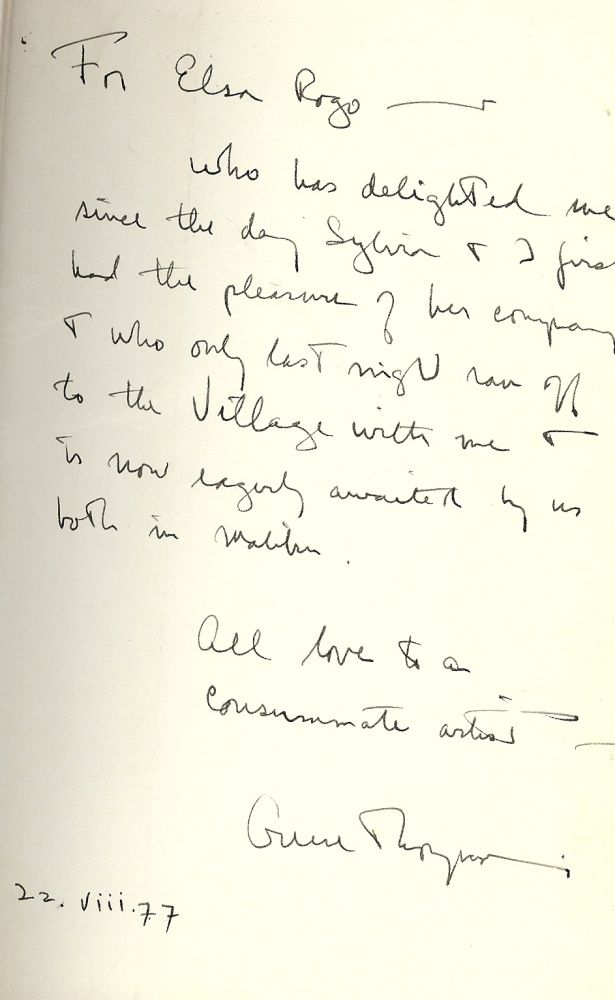 For Elsa Rogo —
who has delighted me
since the day Sylvia & I firs
had the pleasure of her company
& who only last night ran off
to the Village with me &
is now eagerly awaited by us
both in Malibu.
All love to a
consummate artist —
Gene Thompson
22.viii.77